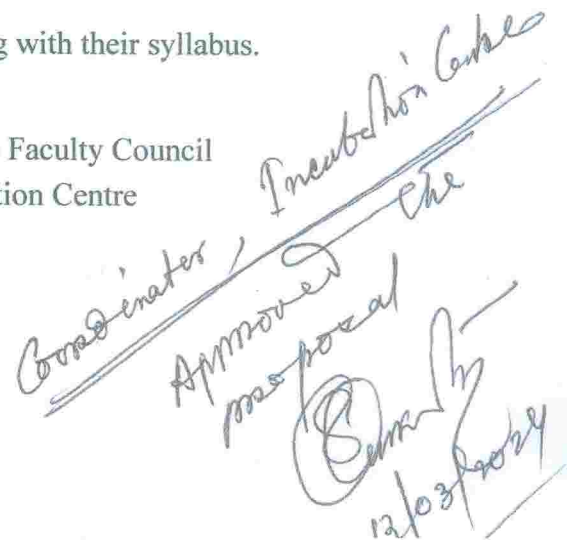 g with their syllabus.
Faculty Council
tion Centre
Coordinator, Incubation Centre
Approved the
proposal
12/03/2024